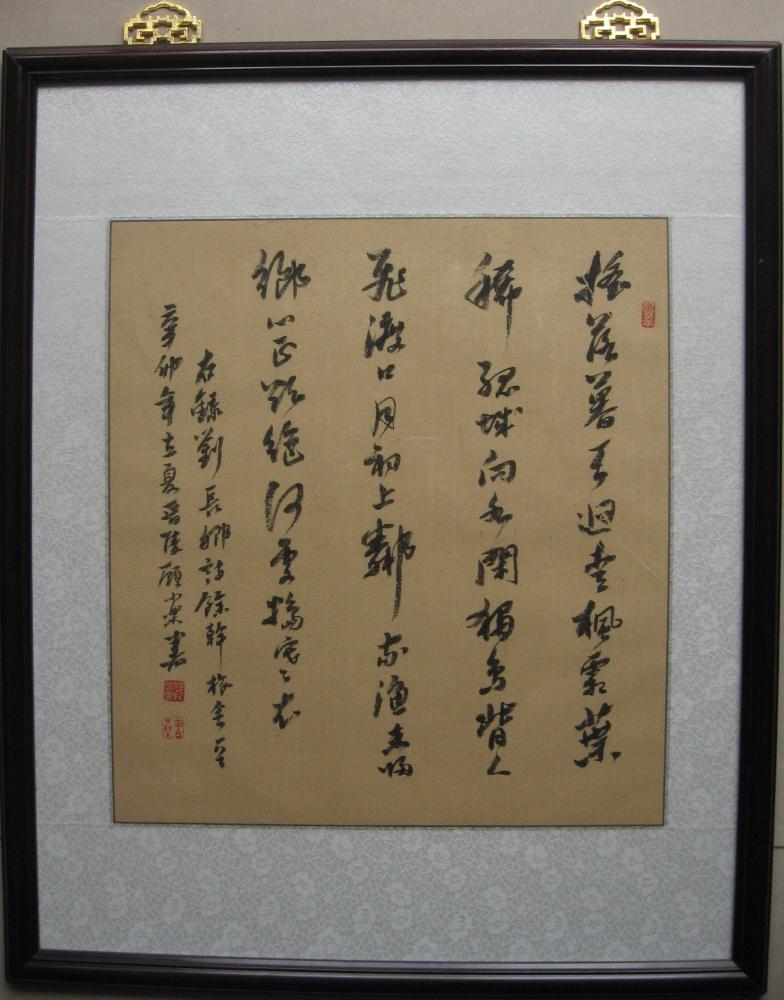 搖落暮天迥青楓霜葉
稀孤城向水閉獨鳥背人
飛渡口月初上鄰家漁未歸
鄉心正欲絕何處搗寒衣
右錄劉長卿詩餘幹旅舍一首
辛卯年立夏晉陵顧棠書